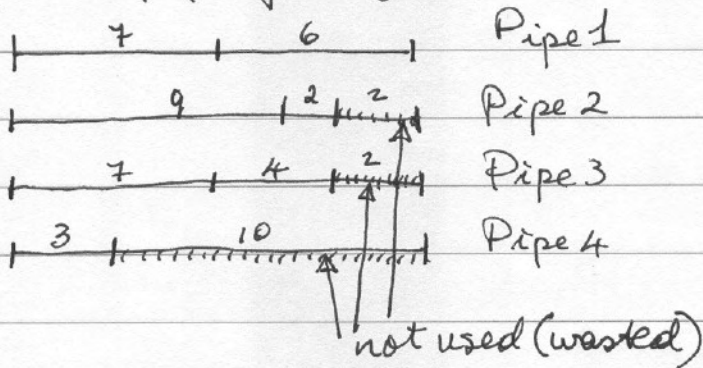 7 6 Pipe 1
9 2 2 Pipe 2
7 4 2 Pipe 3
3 10 Pipe 4
not used (wasted)